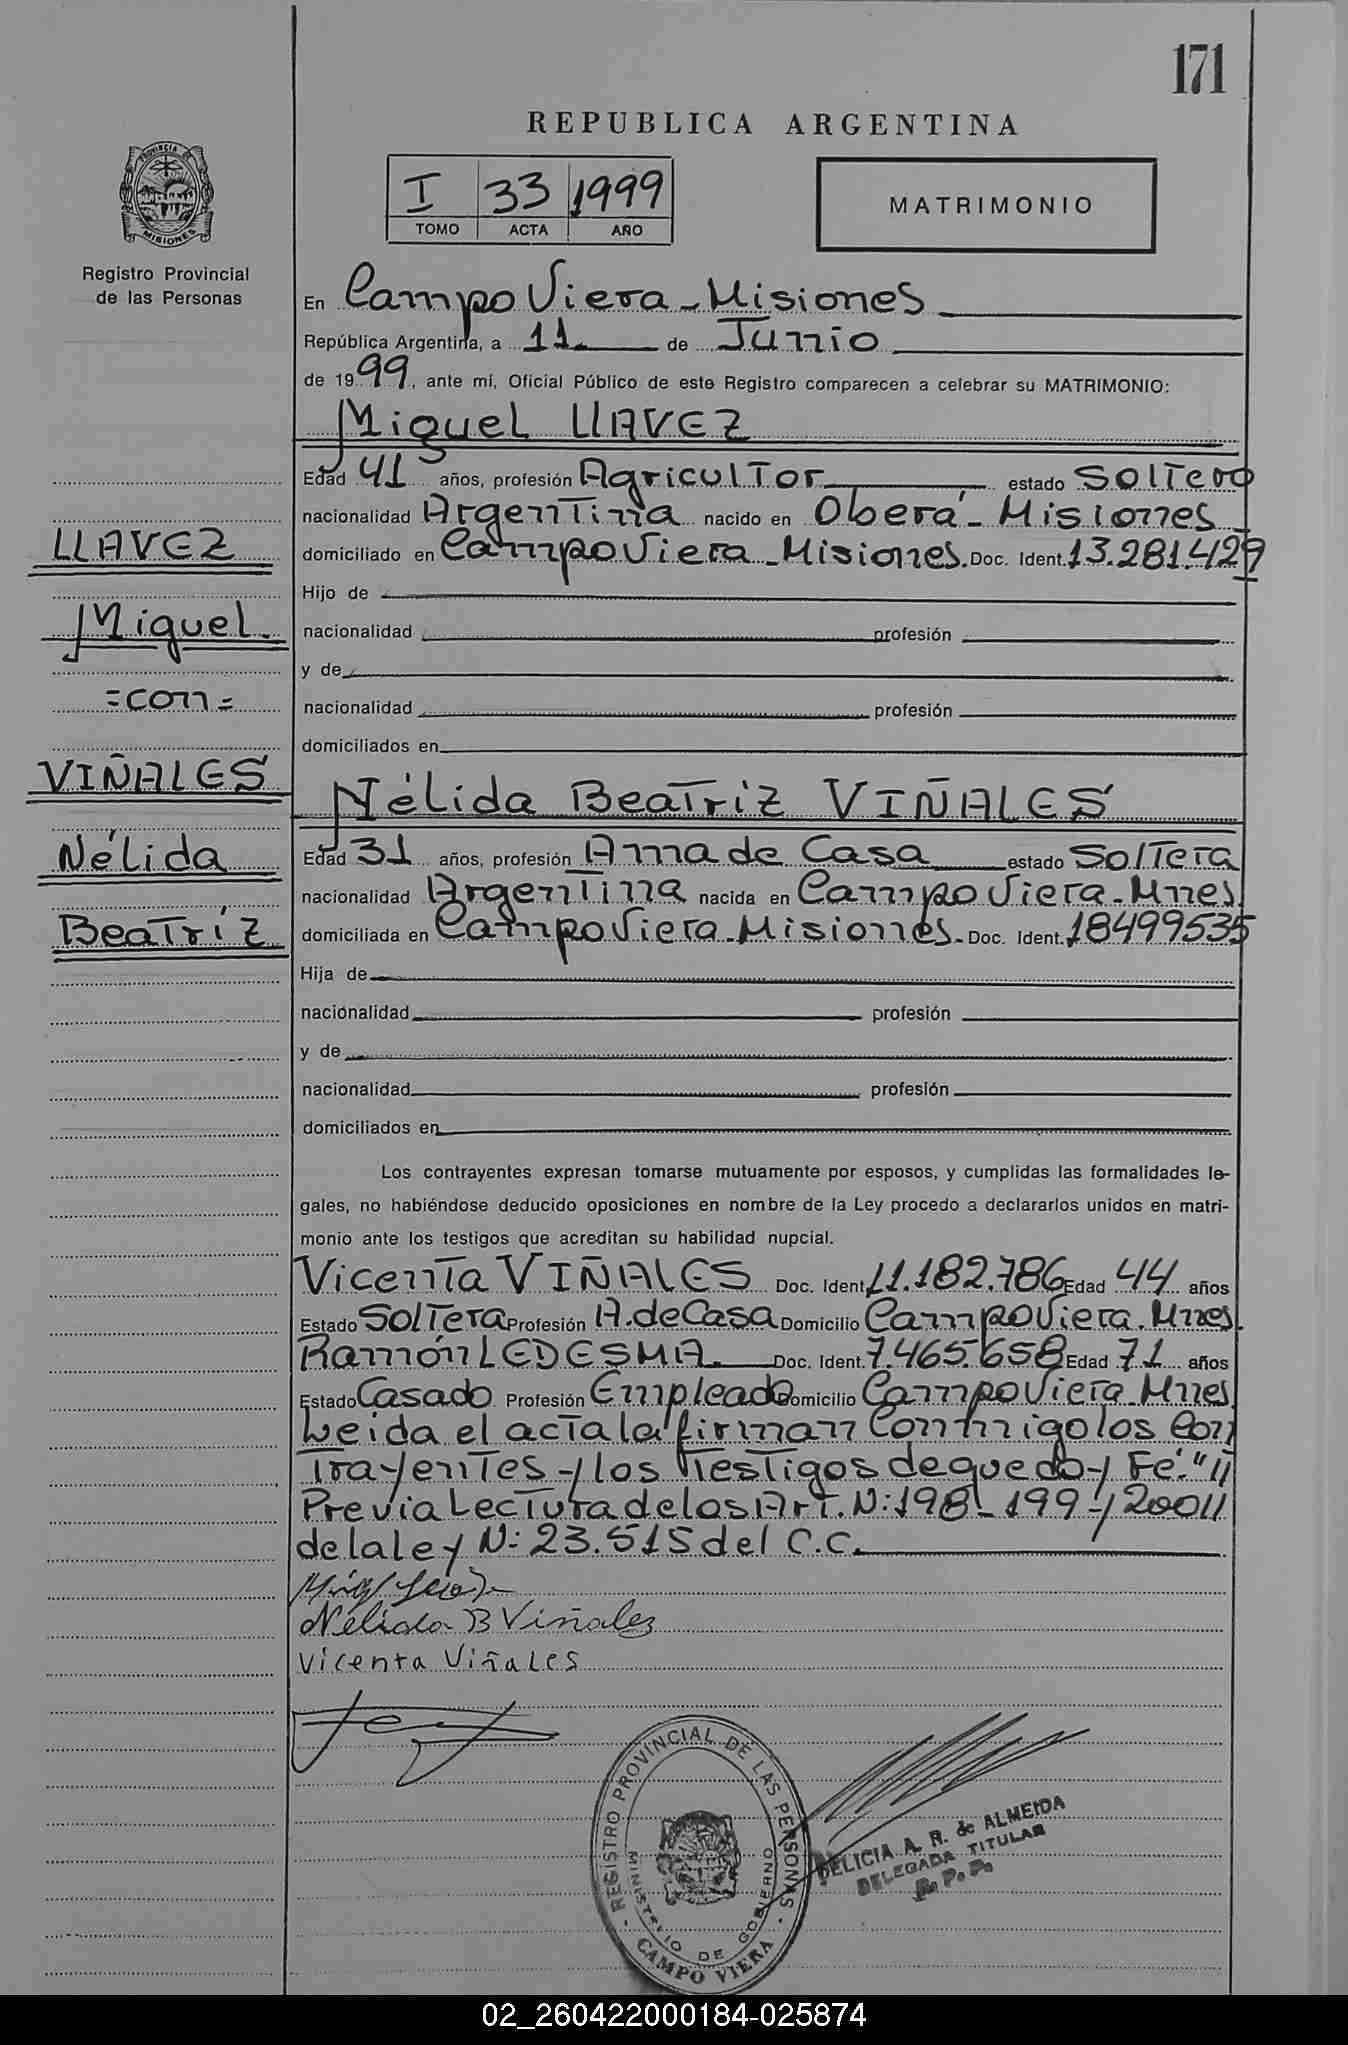 171
REPUBLICA ARGENTINA
PROVINCIA DE
MISIONES
Registro Provincial
de las Personas
I 33 1999
TOMO ACTA AÑO
MATRIMONIO
En Campo Viera - Misiones
República Argentina, a 11 de Junio
de 1999, ante mí, Oficial Público de este Registro comparecen a celebrar su MATRIMONIO:
Miguel LLAVEZ
Edad 41 años, profesión Agricultor estado Soltero
nacionalidad Argentina nacido en Oberá - Misiones
domiciliado en Campo Viera - Misiones. Doc. Ident. 13.281.429
Hijo de
nacionalidad profesión
y de
nacionalidad profesión
domiciliados en
LLAVEZ
Miguel
= con =
VIÑALES
Nélida
Beatríz
Nélida Beatriz VIÑALES
Edad 31 años, profesión Ama de Casa estado Soltera
nacionalidad Argentina nacida en Campo Viera - Mnes
domiciliada en Campo Viera - Misiones - Doc. Ident. 18499535
Hija de
nacionalidad profesión
y de
nacionalidad profesión
domiciliados en
Los contrayentes expresan tomarse mutuamente por esposos, y cumplidas las formalidades le-
gales, no habiéndose deducido oposiciones en nombre de la Ley procedo a declararlos unidos en matri-
monio ante los testigos que acreditan su habilidad nupcial.
Vicenta VIÑALES Doc. Ident. 11.182.786 Edad 44 años
Estado Soltera Profesión A. de Casa Domicilio Campo Viera. Mnes.
Ramón LEDESMA. Doc. Ident. 7.465.658 Edad 71 años
Estado Casado Profesión Empleado Domicilio Campo Viera - Mnes
Leida el acta la firman Conmigo los Con
Trayentes y los Testigos de que doy Fé." "
Previa Lectura de los Art. N: 198 - 199 - y 200 "
de la ley N: 23.515 del C.C.
Nélida B Viñales
Vicenta Viñales
REGISTRO PROVINCIAL DE LAS PERSONAS
MINISTERIO DE GOBIERNO
CAMPO VIERA
DELICIA A. R. de ALMEIDA
DELEGADA TITULAR
R. P. P.
02_260422000184-025874